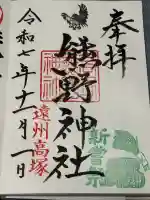 奉拝
熊野神社
遠州高塚
令和七年十一月一日